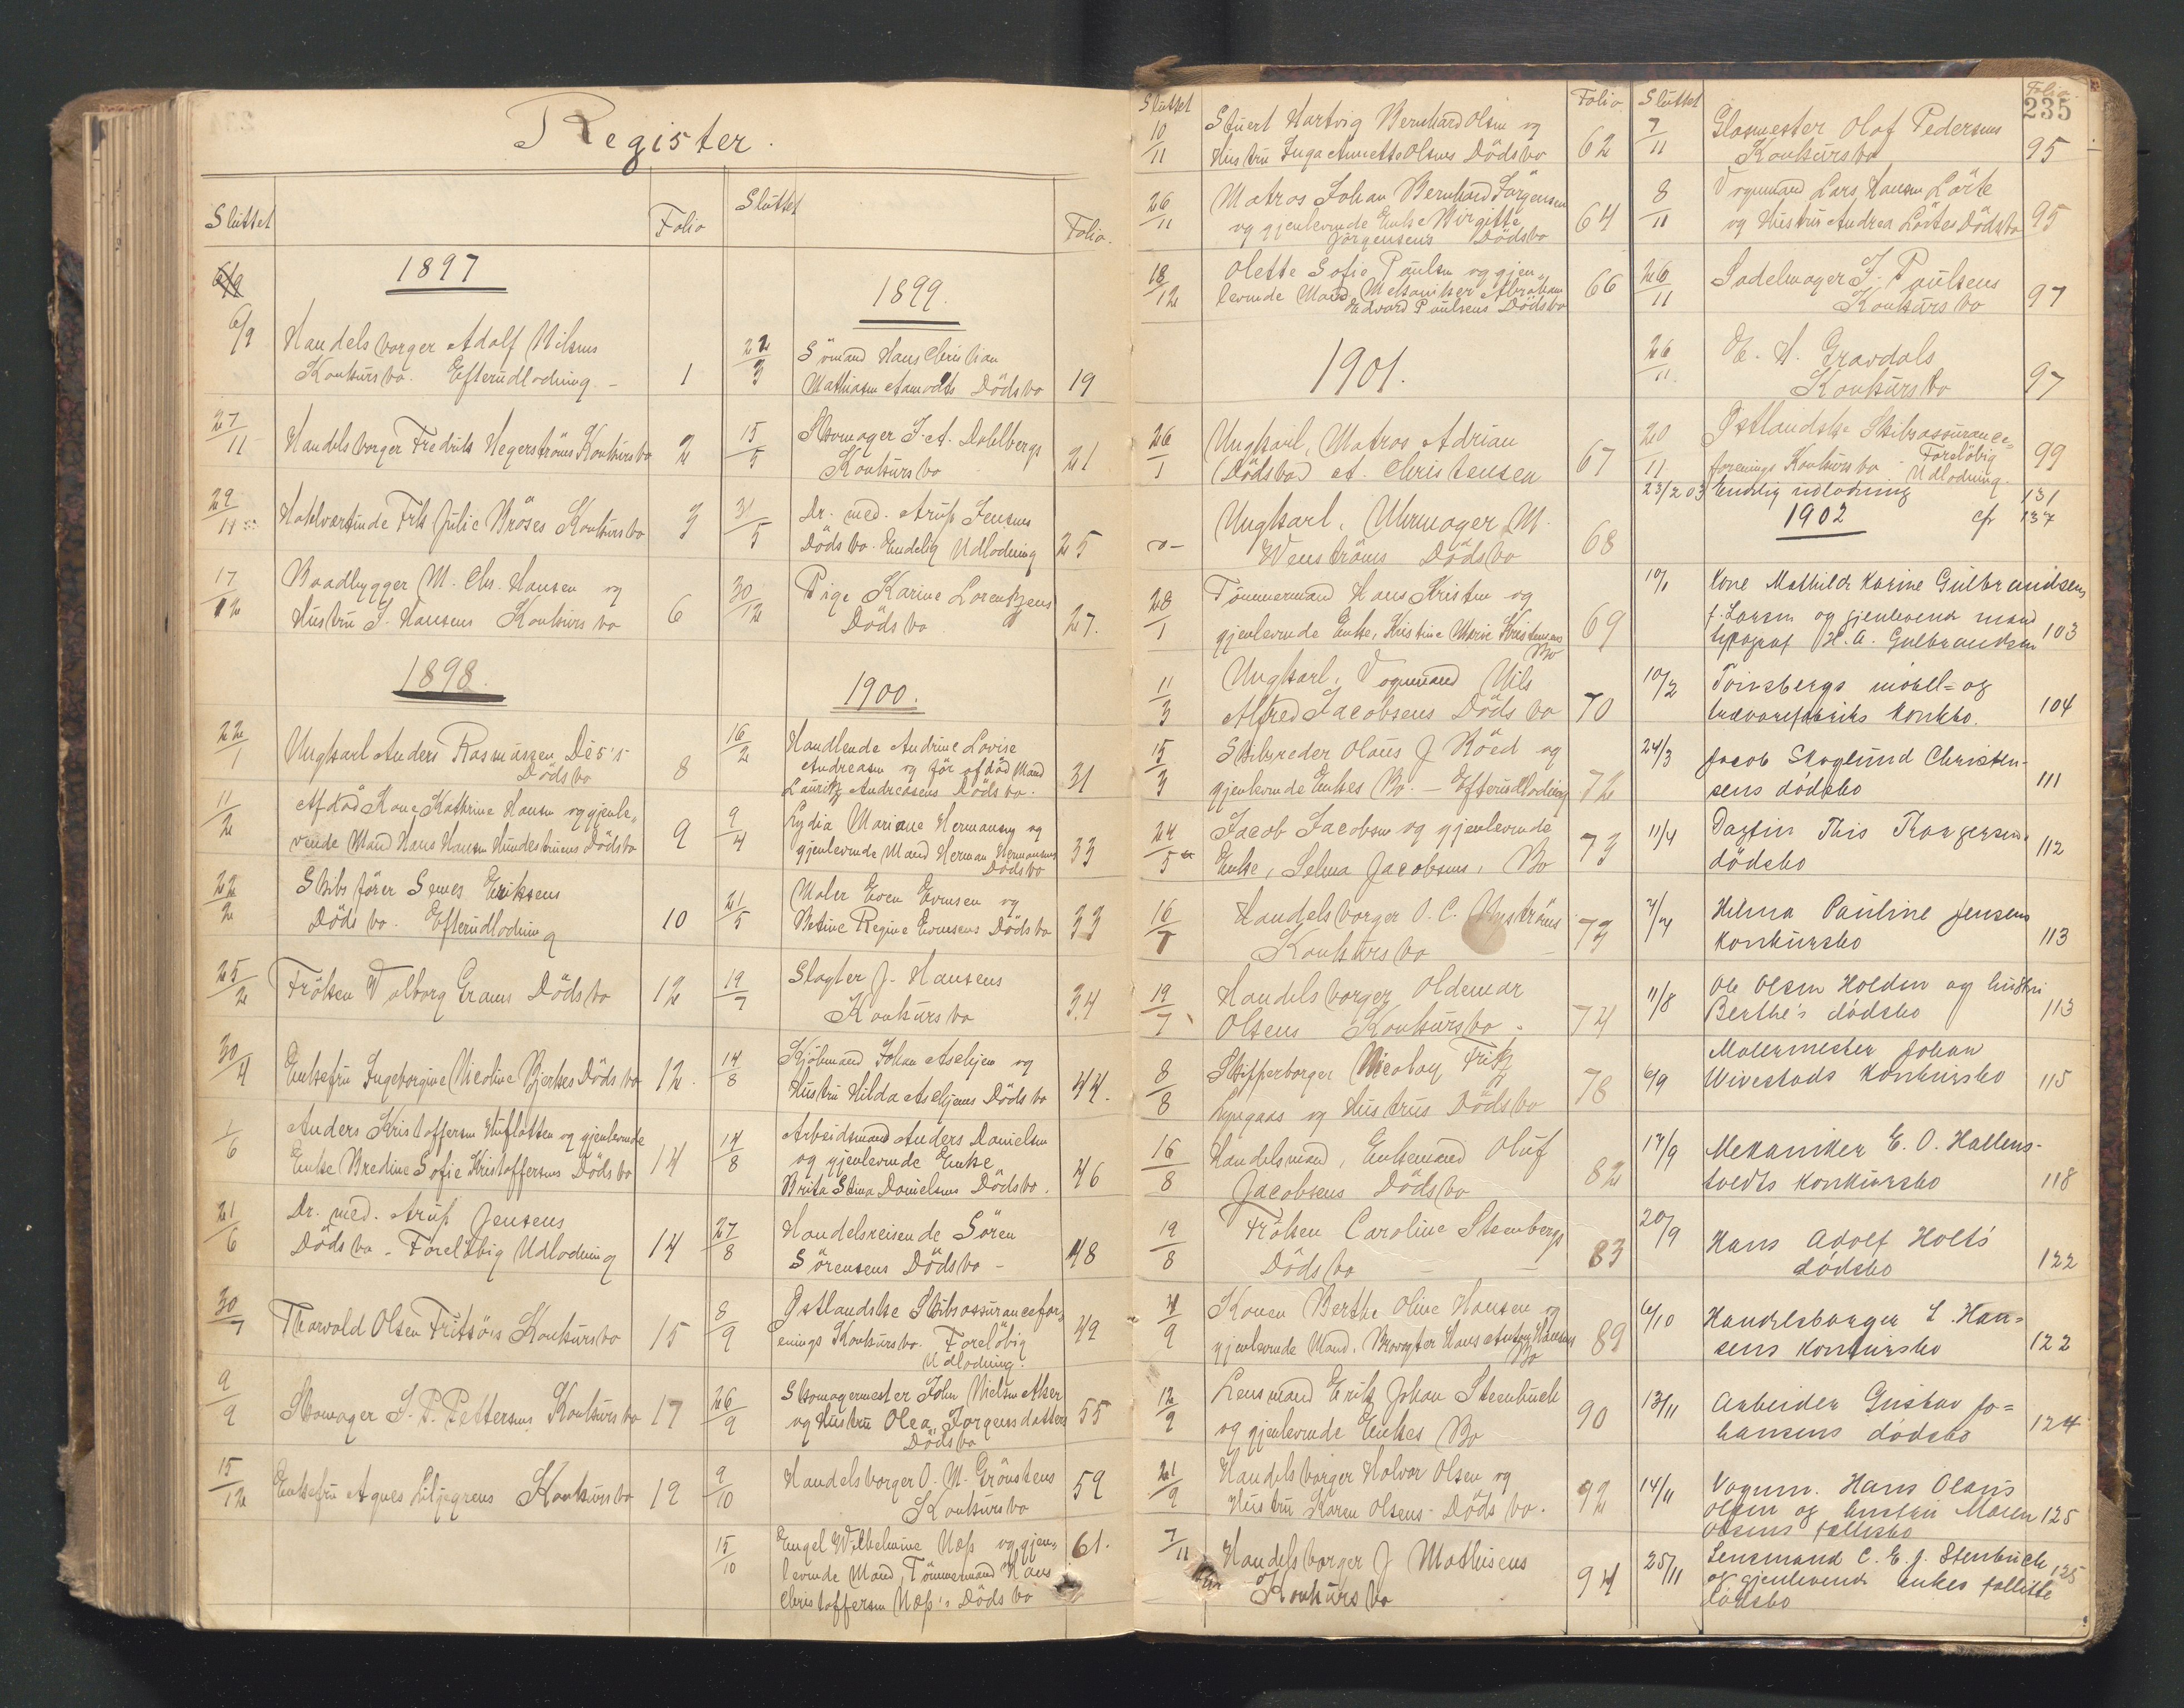 Register.
Sluttet
Folio
1897
6/9
6/9 Handelsborger Adolf Nilsens
Konkursbo. Efterudlodning - 1
27/11 Handelsborger Fredrik Hegerströms Konkursbo 2
29/11 Frk Julie Bröses Konkursbo 3
17/12 Baadbygger M. Chr. Hansen og
Hustru J. Hansens Konkursbo 6
1898.
22/1 Ungkarl Anders Rasmussen Dés's
Dödsbo 8
11/2 Afdöd Kone Kathrine Hansen og gjenle-
vende Mand Hans Hansen Dödsbo 9
22/2 Skibsförer Eriksens
Dödsbo. Efterudlodning 10
25/2 Fröken Valborg Grams Dödsbo 12
30/4 Enkefru Ingeborgine Nicoline Bjerkes Dödsbo 12.
1/6 Anders Kristoffersen og gjenlevende
Enke Bredine Sofie Kristoffersens Dödsbo 14
21/6 Dr. med. Arup Jensens
Dödsbo - Forelöbig Udlodning 14
30/7 Thorvald Olsen Fritsö's Konkursbo 15
9/9 Skomager S. P. Pettersens Konkursbo 17
15/12 Enkefru Agnes Liljegrens Konkursbo 19
Sluttet
Folio.
1899.
22/3 Sömand Hans Christian
Mathiasen Aamodts Dödsbo 19
15/5 Skomager J. A. Dahlbergs
Konkursbo 21
31/5 Dr. med. Arup Jensens
Dödsbo. Endelig Udlodning 25
30/12 Pige Karine Lorentzens
Dödsbo 27.
1900.
16/2 Handlende Andrine Lovise
Andreasen og för afdöd Mand
Lauritz Andreasens Dödsbo. 31
9/4 Lydia Mariane Hermansen og
gjenlevende Mand Herman Hermansens
Dödsbo 33
21/5 Maler Even Evensen og
Betine Regine Evensens Dödsbo 33
19/7 Slagter J. Hansens
Konkursbo 34
14/8 Kjöbmand Johan Askjem og
Hustru Hilda Askjems Dödsbo 44.
14/8 Arbeidsmand Anders Danielsen
og gjenlevende Enke
Brita Stina Danielsens Dödsbo. 46
27/8 Handelsreisende Sören
Sörensens Dödsbo - 48
8/9 Østlandske Skibsassurancefor-
enings Konkursbo. Forelöbig
Udlodning. 49
26/9 Skomagermester John Nielsen Aker
og Hustru Olea Jörgensdatters
Dödsbo 55
9/10 Handelsborger O. M. Grönstens
Konkursbo 59
15/10 Engel Wilhelmine Næss og gjen-
levende Mand, Tömmermand Hans
Christoffersen Næss's Dödsbo 61.
Sluttet
Folio
10/11 Stuert Hartvig Bernhard Olsen og
Hustru Inga Annette Olsens Dödsbo 62
26/11 Matros Johan Bernhard Jörgensen
og gjenlevende Enke Birgitte
Jörgensens Dödsbo 64
18/12 Olette Sofie Paulsen og gjen-
levende Mand, Mekaniker Abraham
Edvard Paulsens Dödsbo 66
1901.
26/1 Ungkarl, Matros Adrian
(Dödsbo) A. Christensen 67
-"- Ungkarl, Uhrmager M.
Wenströms Dödsbo 68
28/1 Tömmermand Hans Kristen og
gjenlevende Enke, Kristine Marie Kristensens
Bo 69
11/3 Ungkarl, Vognmand Nils
Alfred Jacobsens Dödsbo 70
15/3 Skibsreder Olaus J Röed og
gjenlevende Enkes Bo. - Efterudlodning 72
24/5 Jacob Jacobsen og gjenlevende
Enke, Selma Jacobsens, Bo 73
16/7 Handelsborger O. C.
Konkursbo 73
19/7 Handelsborger Oldemar
Olsens Konkursbo. 74
8/8 Skipperborger Nicolay Fritz
og Hustrus Dödsbo 78
16/8 Handelsmand, Enkemand Oluf
Jacobsens Dödsbo 82
19/8 Fröken Caroline Steenbergs
Dödsbo 83
4/9 Konen Berthe Oline Hansen og
gjenlevende Mand, Hans Anton Hansens
Bo 89
12/9 Lensmand Erik Johan Steenbuch
og gjenlevende Enkes Bo 90
21/9 Handelsborger Halvor Olsen og
Hustru Karen Olsens Dödsbo. 92
7/11 Handelsborger J Mathisens
Konkursbo 94
Sluttet
Folio.
235
7/11 Glasmester Olaf Pedersens
Konkursbo 95
8/11 Vognmand Lars Hansen Lörke
og Hustru Andrea Lörkes Dödsbo 95
26/11 Sadelmager J. Paulsens
Konkursbo 97
26/11 E. H. Gravdals
Konkursbo 97
20/11 Østlandske Skibsassurance-
forenings Konkursbo - Forelöbig
Udlodning. 99
23/2 03 Endelig udlodning 131
cfr 137
1902
10/1 Kone Mathilde Karine Gulbrandsens
f. Larsen og gjenlevende mand
typograf H. A. Gulbrandsen 103
10/2 Tönsbergs möbel- og
trævarefabriks konkbo. 104
24/3 Jacob Skoglund Christen-
sens dödsbo 111
11/4 Dagfin This Thorgersens
dödsbo 112
7/7 Hilma Pauline Jensens
Konkursbo 113
11/8 Ole Olsen Holden og hustru
Berthe's dödsbo 113
6/9 Malermester Johan
Wivestads Konkursbo 115
17/9 Mekaniker E. O. Hallens-
tvedts konkursbo 118
20/9 Hans Adolf Holts
dödsbo 122
6/10 Handelsborger L. Han-
sens konkursbo 122
13/11 Arbeider Gustav Jo-
hansens dödsbo 124
14/11 Vognm. Hans Olaus
Olsen og hustru Maren
Olsens fællesbo 125
25/11 Lensmand C. E. J. Stenbuch
og gjenlevende enkes fallitte
dödsbo 125